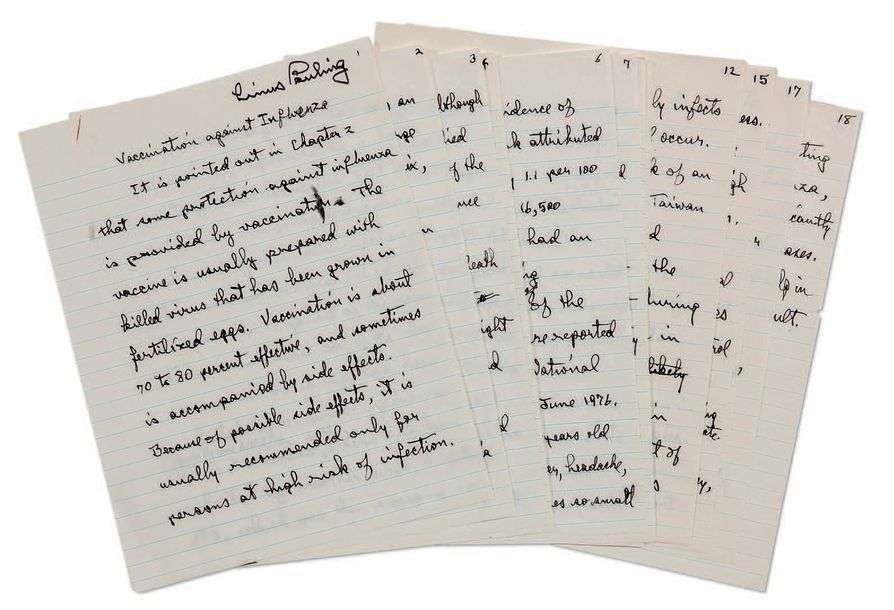 Linus Pauling 1
Vaccination against Influenza
It is pointed out in Chapter 2
that some protection against influenza
is provided by vaccination. The
vaccine is usually prepared with
killed virus that has been grown in
fertilized eggs. Vaccination is about
70 to 80 percent effective, and sometimes
is accompanied by side effects.
Because of possible side effects, it is
usually recommended only for
persons at high risk of infection.
2
an
ge
ix,
3
lthough
ied
f the
nce
eath
ight
d
6
idence of
k attributed
1.1 per 100
16,500
had an
ng
of the
re reported
National
June 1976.
years old
er, headache,
es so small
7
d
12
ly infects
? occur.
k of an
Taiwan
d
the
during
in
likely
in
t of
s
15
ers.
gh
17
18
ting
za,
cantly
axes.
lp in
ult.